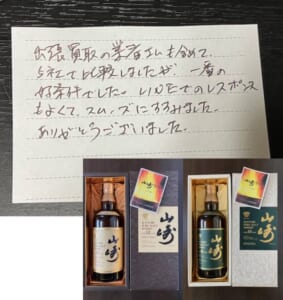 出張買取の業者さんも含めて、
5社で比較しましたが、一番の
好条件でした。LINEでのレスポンス
もよくて、スムーズにすすみました。
ありがとうございました。
山崎
山崎
山崎
山崎